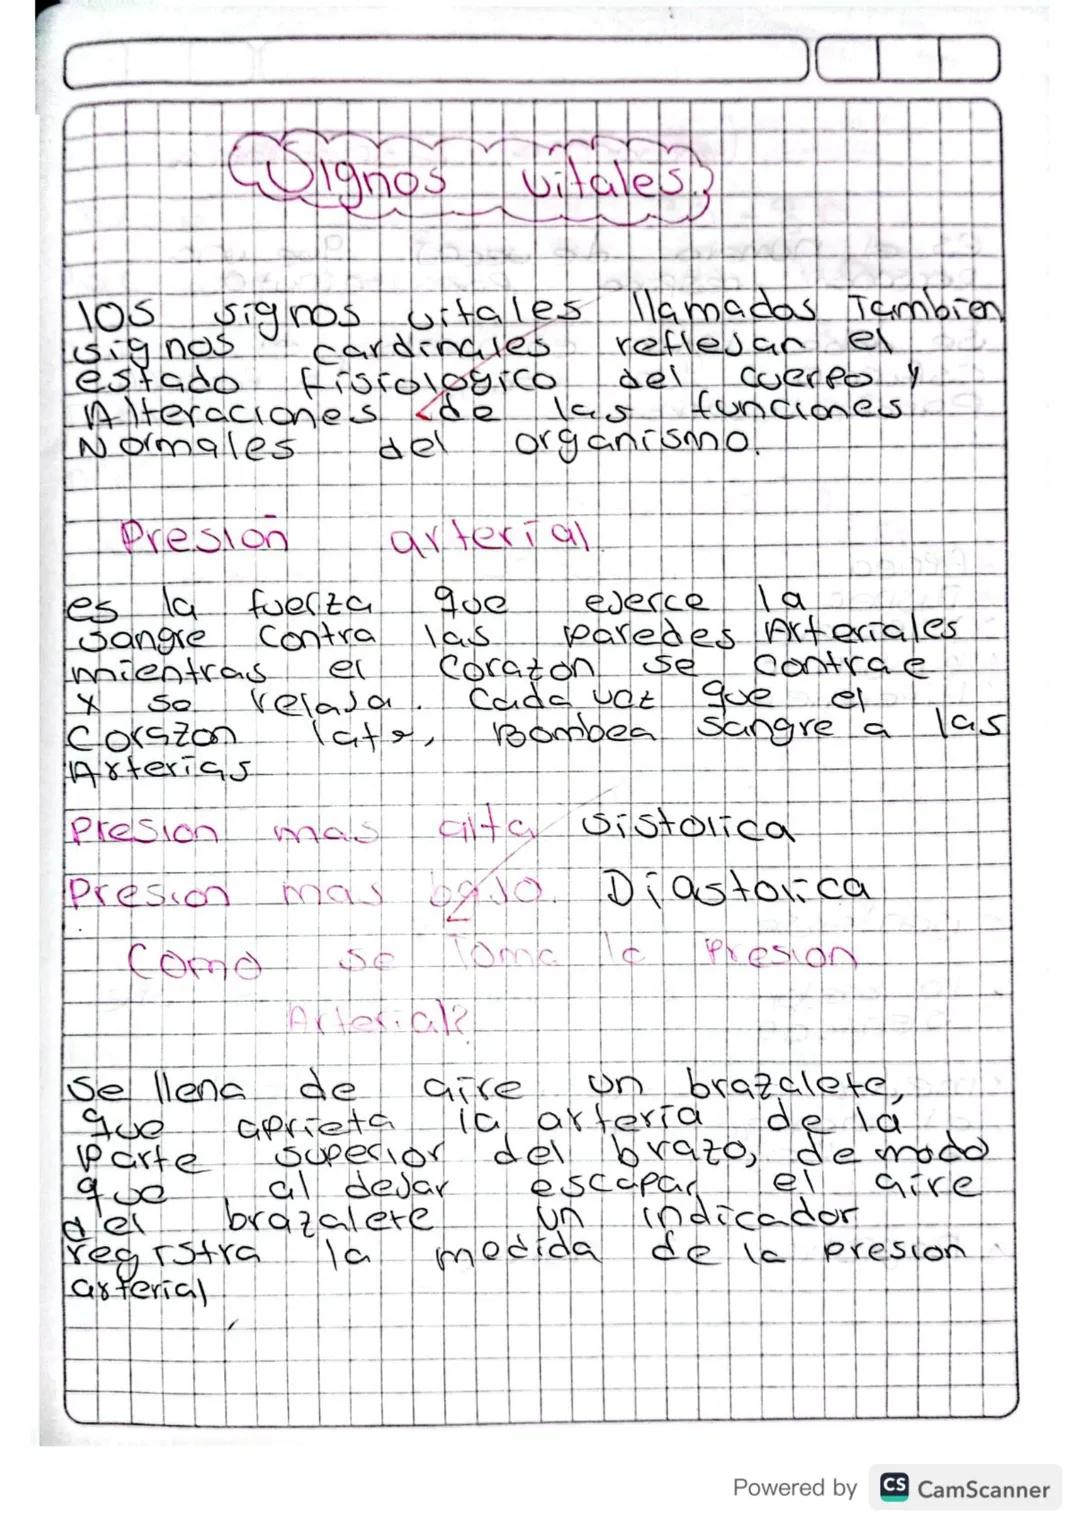 Signos vitales
los signos vitales llamados Tambien
signos cardinales reflejan el
estado fisiologico del cuerpo y
Alteraciones de las funciones
Normales del organismo.
Presion arterial
es la fuerza que ejerce la
sangre contra las paredes Arteriales
mientras el corazon se contrae
y se relaja. Cada vez que el
corazon late, Bombea sangre a las
Arterias
Presion mas alta sistolica
Presion mas bajo. Diastolica
Como se Toma la Presion
Arterial?
Se llena de aire un brazalete,
que aprieta la arteria de la
Parte superior del brazo, de modo
que al dejar escapar el aire
del brazalete un indicador
registra la medida de la presion
arterial
Powered by CS CamScanner